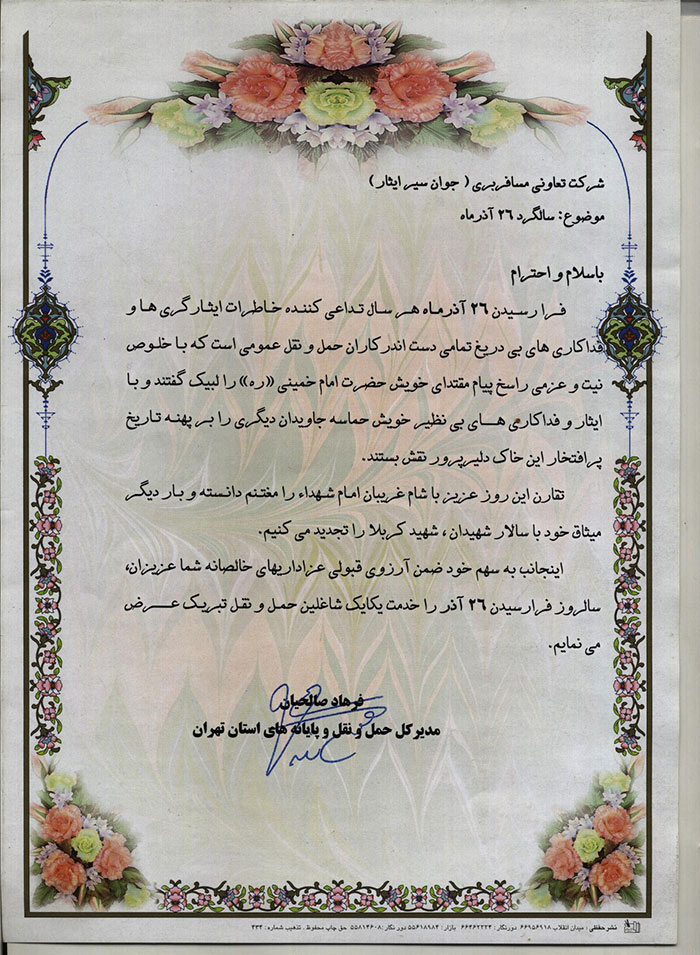 شرکت تعاونی مسافربری ( جوان سیر ایثار )
موضوع: سالگرد ۲۶ آذرماه
باسلام و احترام
فرا رسیدن ۲۶ آذرماه هر سال تداعی کننده خاطرات ایثارگری ها و
فداکاری های بی دریغ تمامی دست اندرکاران حمل و نقل عمومی است که با خلوص
نیت و عزمی راسخ پیام مقتدای خویش حضرت امام خمینی «ره» را لبیک گفتند و با
ایثار و فداکاری هـــای بی نظیر خویش حماسه جاویدان دیگری را بر پهنه تاریخ
پرافتخار این خاک دلیرپرور نقش بستند.
تقارن این روز عزیز با شام غریبان امام شهداء را مغتنم دانسته و بار دیگر
میثاق خود با سالار شهیدان ، شهید کربلا را تجدید می کنیم.
اینجانب به سهم خود ضمن آرزوی قبولی عزاداریهای خالصانه شما عزیزان،
سالروز فرارسیدن ۲۶ آذر را خدمت یکایک شاغلین حمل و نقل تبریک عـــرض
می نمایم.
فرهاد صالحیان
مدیرکل حمل و نقل و پایانه های استان تهران
نشر حفظی : میدان انقلاب ۶۶۹۵۶۹۱۸ دورنگار: ۶۶۴۶۲۲۲۴ بازار: ۵۵۶۱۸۹۸۴ دورنگار: ۵۵۸۱۴۶۰۸ حق چاپ محفوظ . تذهیب شماره : ۴۳۴